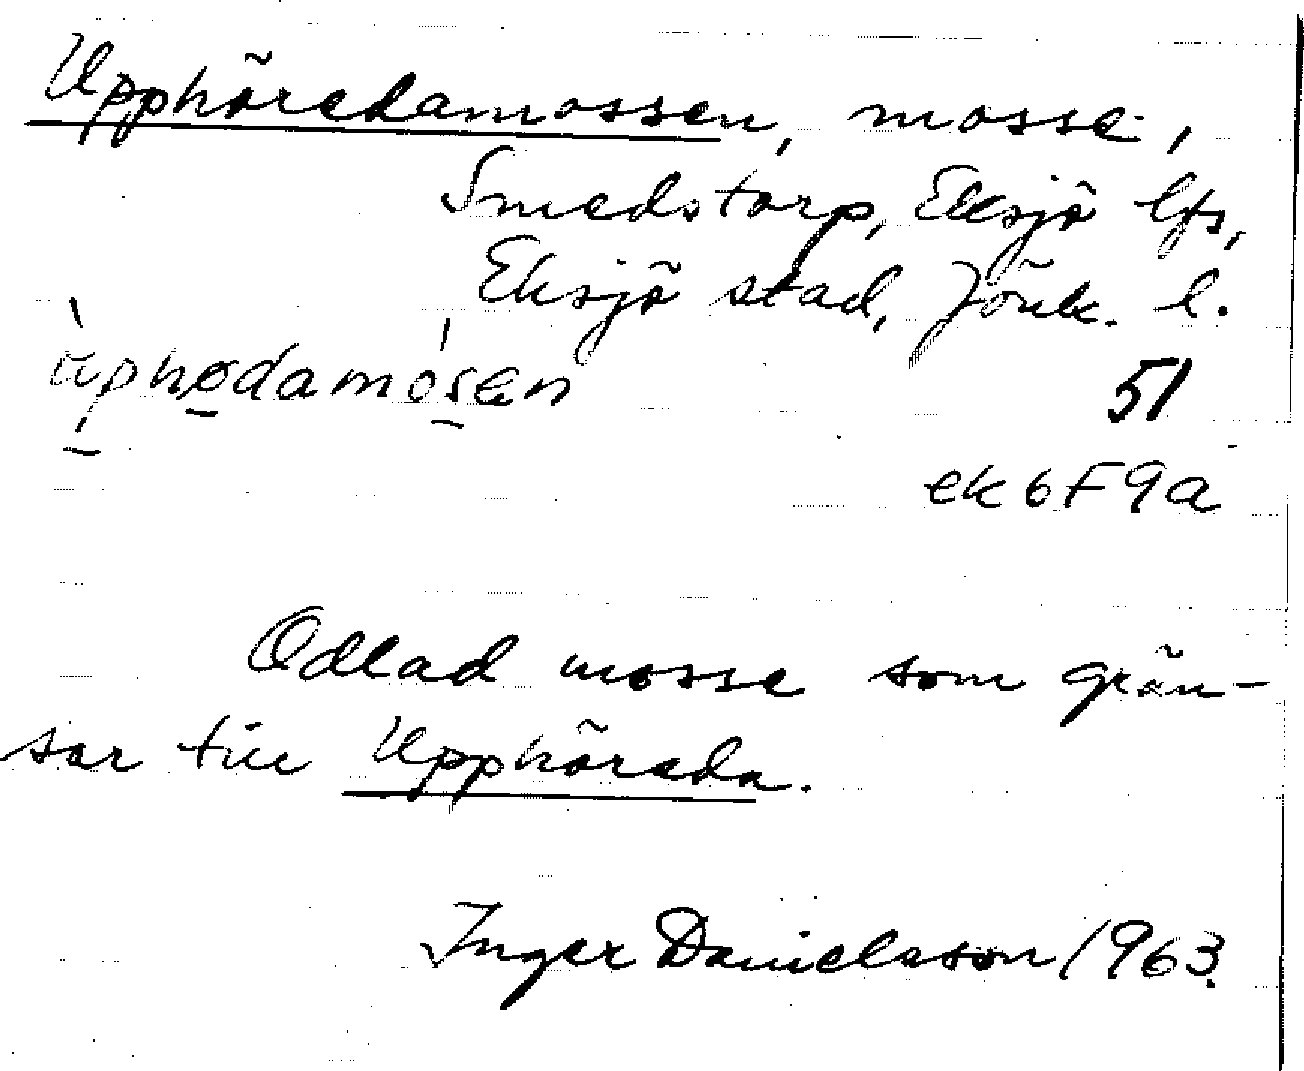 Upphöredamossen, mosse,
Smedstorp, Eksjö lfs,
Eksjö stad, Jönk. l.
51
ek 6F9a
Odlad mosse som grän-
sar till Upphöreda.
Inger Danielsson 1963.